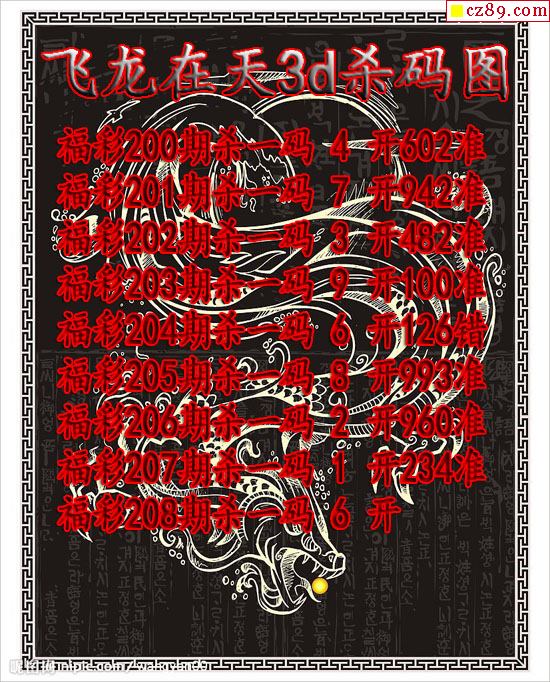 cz89.com
飞龙在天3d杀码图
福彩200期杀一码 4 开602准
福彩201期杀一码 7 开942准
福彩202期杀一码 3 开482准
福彩203期杀一码 9 开100准
福彩204期杀一码 6 开126错
福彩205期杀一码 8 开993准
福彩206期杀一码 2 开960准
福彩207期杀一码 1 开234准
福彩208期杀一码 6 开